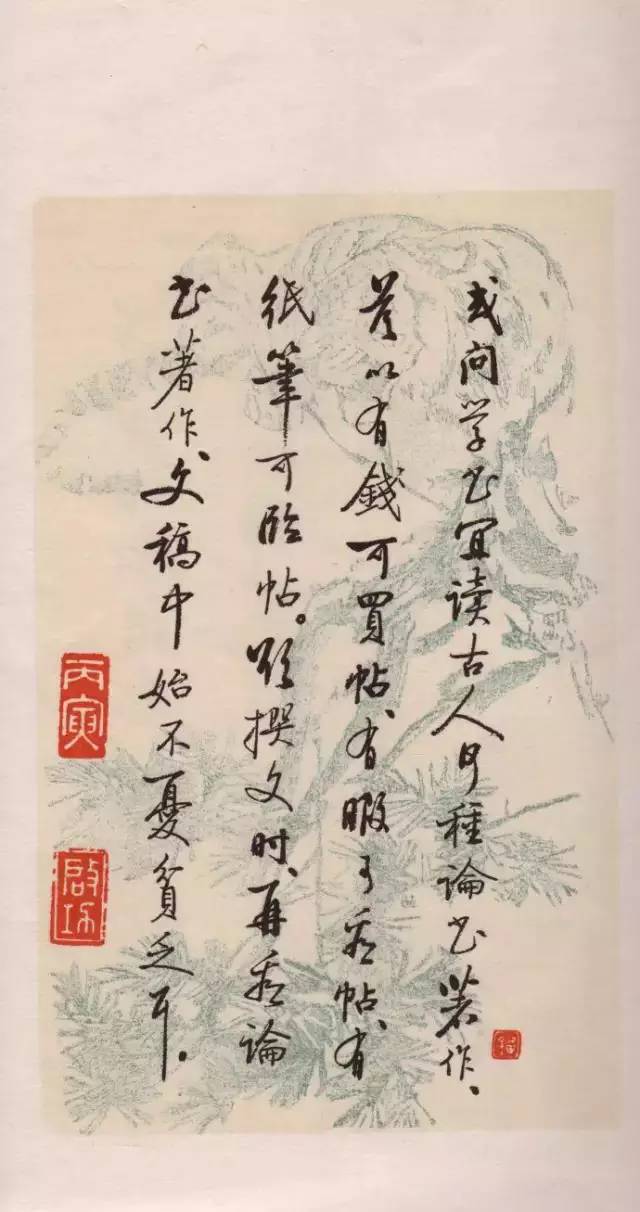 或问学书宜读古人何種論书著作、
答以有錢可買帖、有暇可看帖、有
纸筆可临帖。欲撰文时、再看論
书著作、文稿中始不憂貧乏耳。
丙寅
啟功